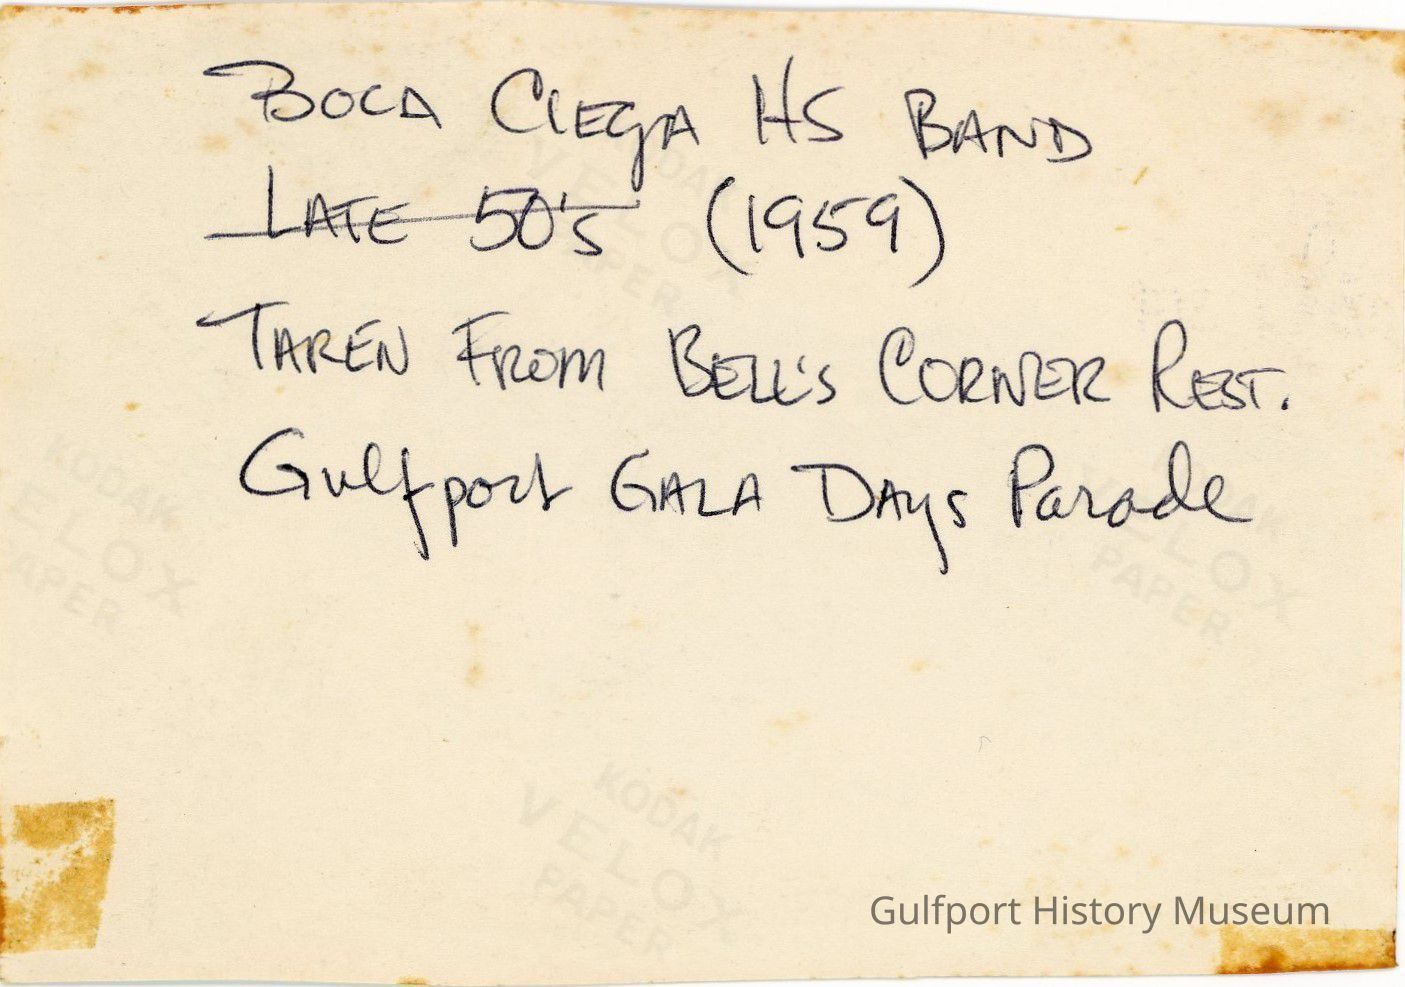 BOCA CIEGA HS BAND
~~LATE 50's~~ (1959)
TAKEN FROM BELL'S CORNER REST.
Gulfport GALA DAYS Parade
KODAK
VELOX
PAPER
KODAK
VELOX
PAPER
KODAK
VELOX
PAPER
KODAK
VELOX
PAPER
Gulfport History Museum